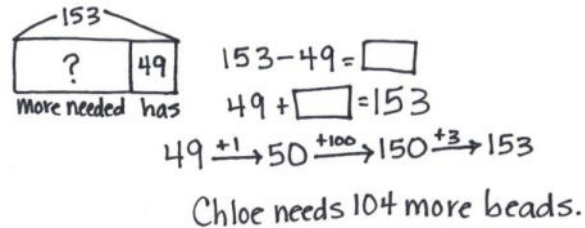 153
? 49
more needed has
153-49=□
49+□=153
49 +1→ 50 +100→ 150 +3→ 153
Chloe needs 104 more beads.